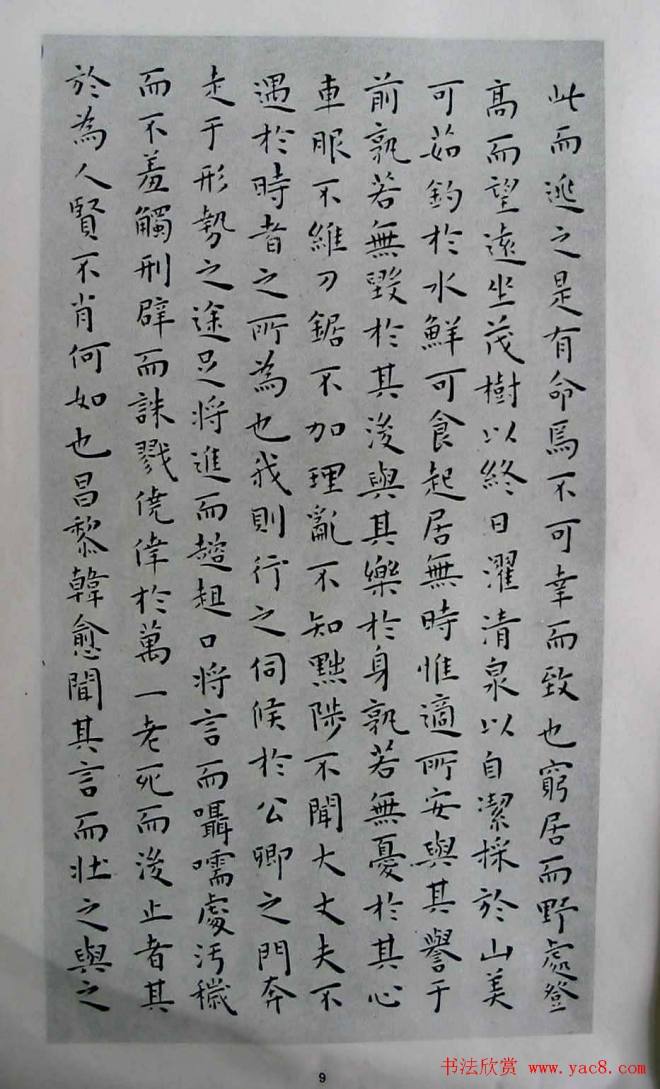 此而逃之是有命焉不可幸而致也窮居而野處登
高而望遠坐茂樹以終日濯清泉以自潔採於山美
可茹釣於水鮮可食起居無時惟適所安與其譽于
前孰若無毀於其後與其樂於身孰若無憂於其心
車服不維刀鋸不加理亂不知黜陟不聞大丈夫不
遇於時者之所為也我則行之伺候於公卿之門奔
走于形勢之途足將進而趑趄口將言而囁嚅處汚穢
而不羞觸刑辟而誅戮僥倖於萬一老死而後止者其
於為人賢不肖何如也昌黎韓愈聞其言而壯之與之
9
书法欣赏 www.yac8.com